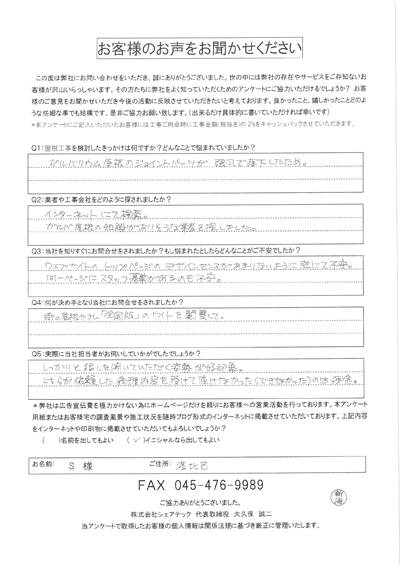 お客様のお声をお聞かせください
この度は弊社にお問い合わせをいただき、誠にありがとうございました。世の中には弊社の存在やサービスをご存知ないお
客様が沢山いらっしゃいます。その方たちに弊社をよく知っていただくためのアンケートにご協力いただけるでしょうか? お客
様のご意見をお聞かせいただき今後の活動に反映させていただきたいと考えております。良かったこと、嬉しかったことどのよ
うな些細な事でも結構です。是非ご協力お願い致します。(出来るだけ具体的に書いていただければ幸いです)
*本アンケートにご記入いただいたお客様には工事ご用命時に工事金額(税抜き)の2%をキャッシュバックさせていただきます。
Q1:屋根工事を検討したきっかけは何ですか?どんなことで悩まれていましたか?
ガルバリウム屋根のジョイントパーツが強風で落下したため。
Q2:業者や工事会社をどのように探されましたか?
インターネットにて検索。
ガルバ屋根の知識がありそうな業者を探しました。
Q3:当社を知りすぐにお問合せをされましたか?もし悩まれたとしたらどんなことがご不安でしたか?
ウェブサイトのトップページのデザインセンスがあまりないように感じて不安。
同一ページにスタッフ募集があるのも不安。
Q4:何が決め手となり当社にお問合せをされましたか?
街の屋根やさん「全国版」のサイトを閲覧して。
Q5:実際に当社担当者がお伺いしていかがでしたでしょうか?
しっかりと話しを聞いていただく姿勢が好印象。
こちらが依頼した修理内容を受けて頂けなかった(できなかった)のは残念。
*弊社は広告宣伝費を極力かけない為にホームページだけを頼りにお客様への営業活動を行っております。本アンケート
用紙またはお客様宅の調査風景や施工状況を随時ブログ形式のインターネットに掲載させていただいております。上記内容
をインターネットや印刷物に掲載させていただいてもよろしいでしょうか?
( )名前を出してもよい (✓)イニシャルなら出してもよい
お名前: S 様 ご住所: 港北区
FAX 045-476-9989
ご協力ありがとうございました。
株式会社シェアテック 代表取締役 大久保 誠二
当アンケートで取得したお客様の個人情報は関係法規に基づき厳正に管理いたします。